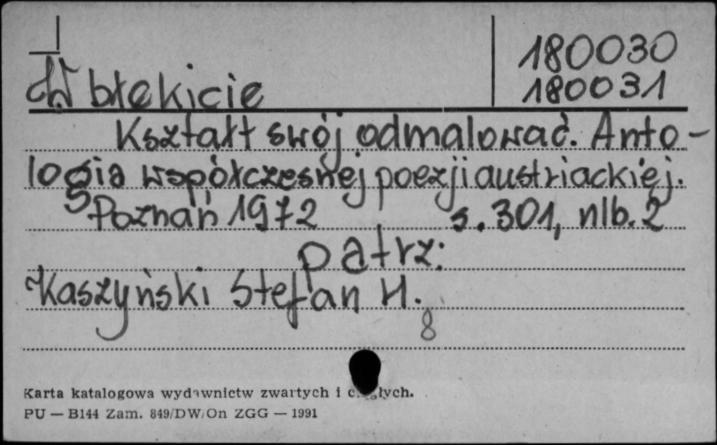 I
180030
W błękicie
180031
Kształt swój odmalować. Anto-
logia współczesnej poezji austriackiej.
Poznań 1972 s. 301, nlb. 2
patrz:
Kaszyński Stefan H.
8
Karta katalogowa wydawnictw zwartych i ciągłych.
PU — B144 Zam. 849/DW/On ZGG — 1991